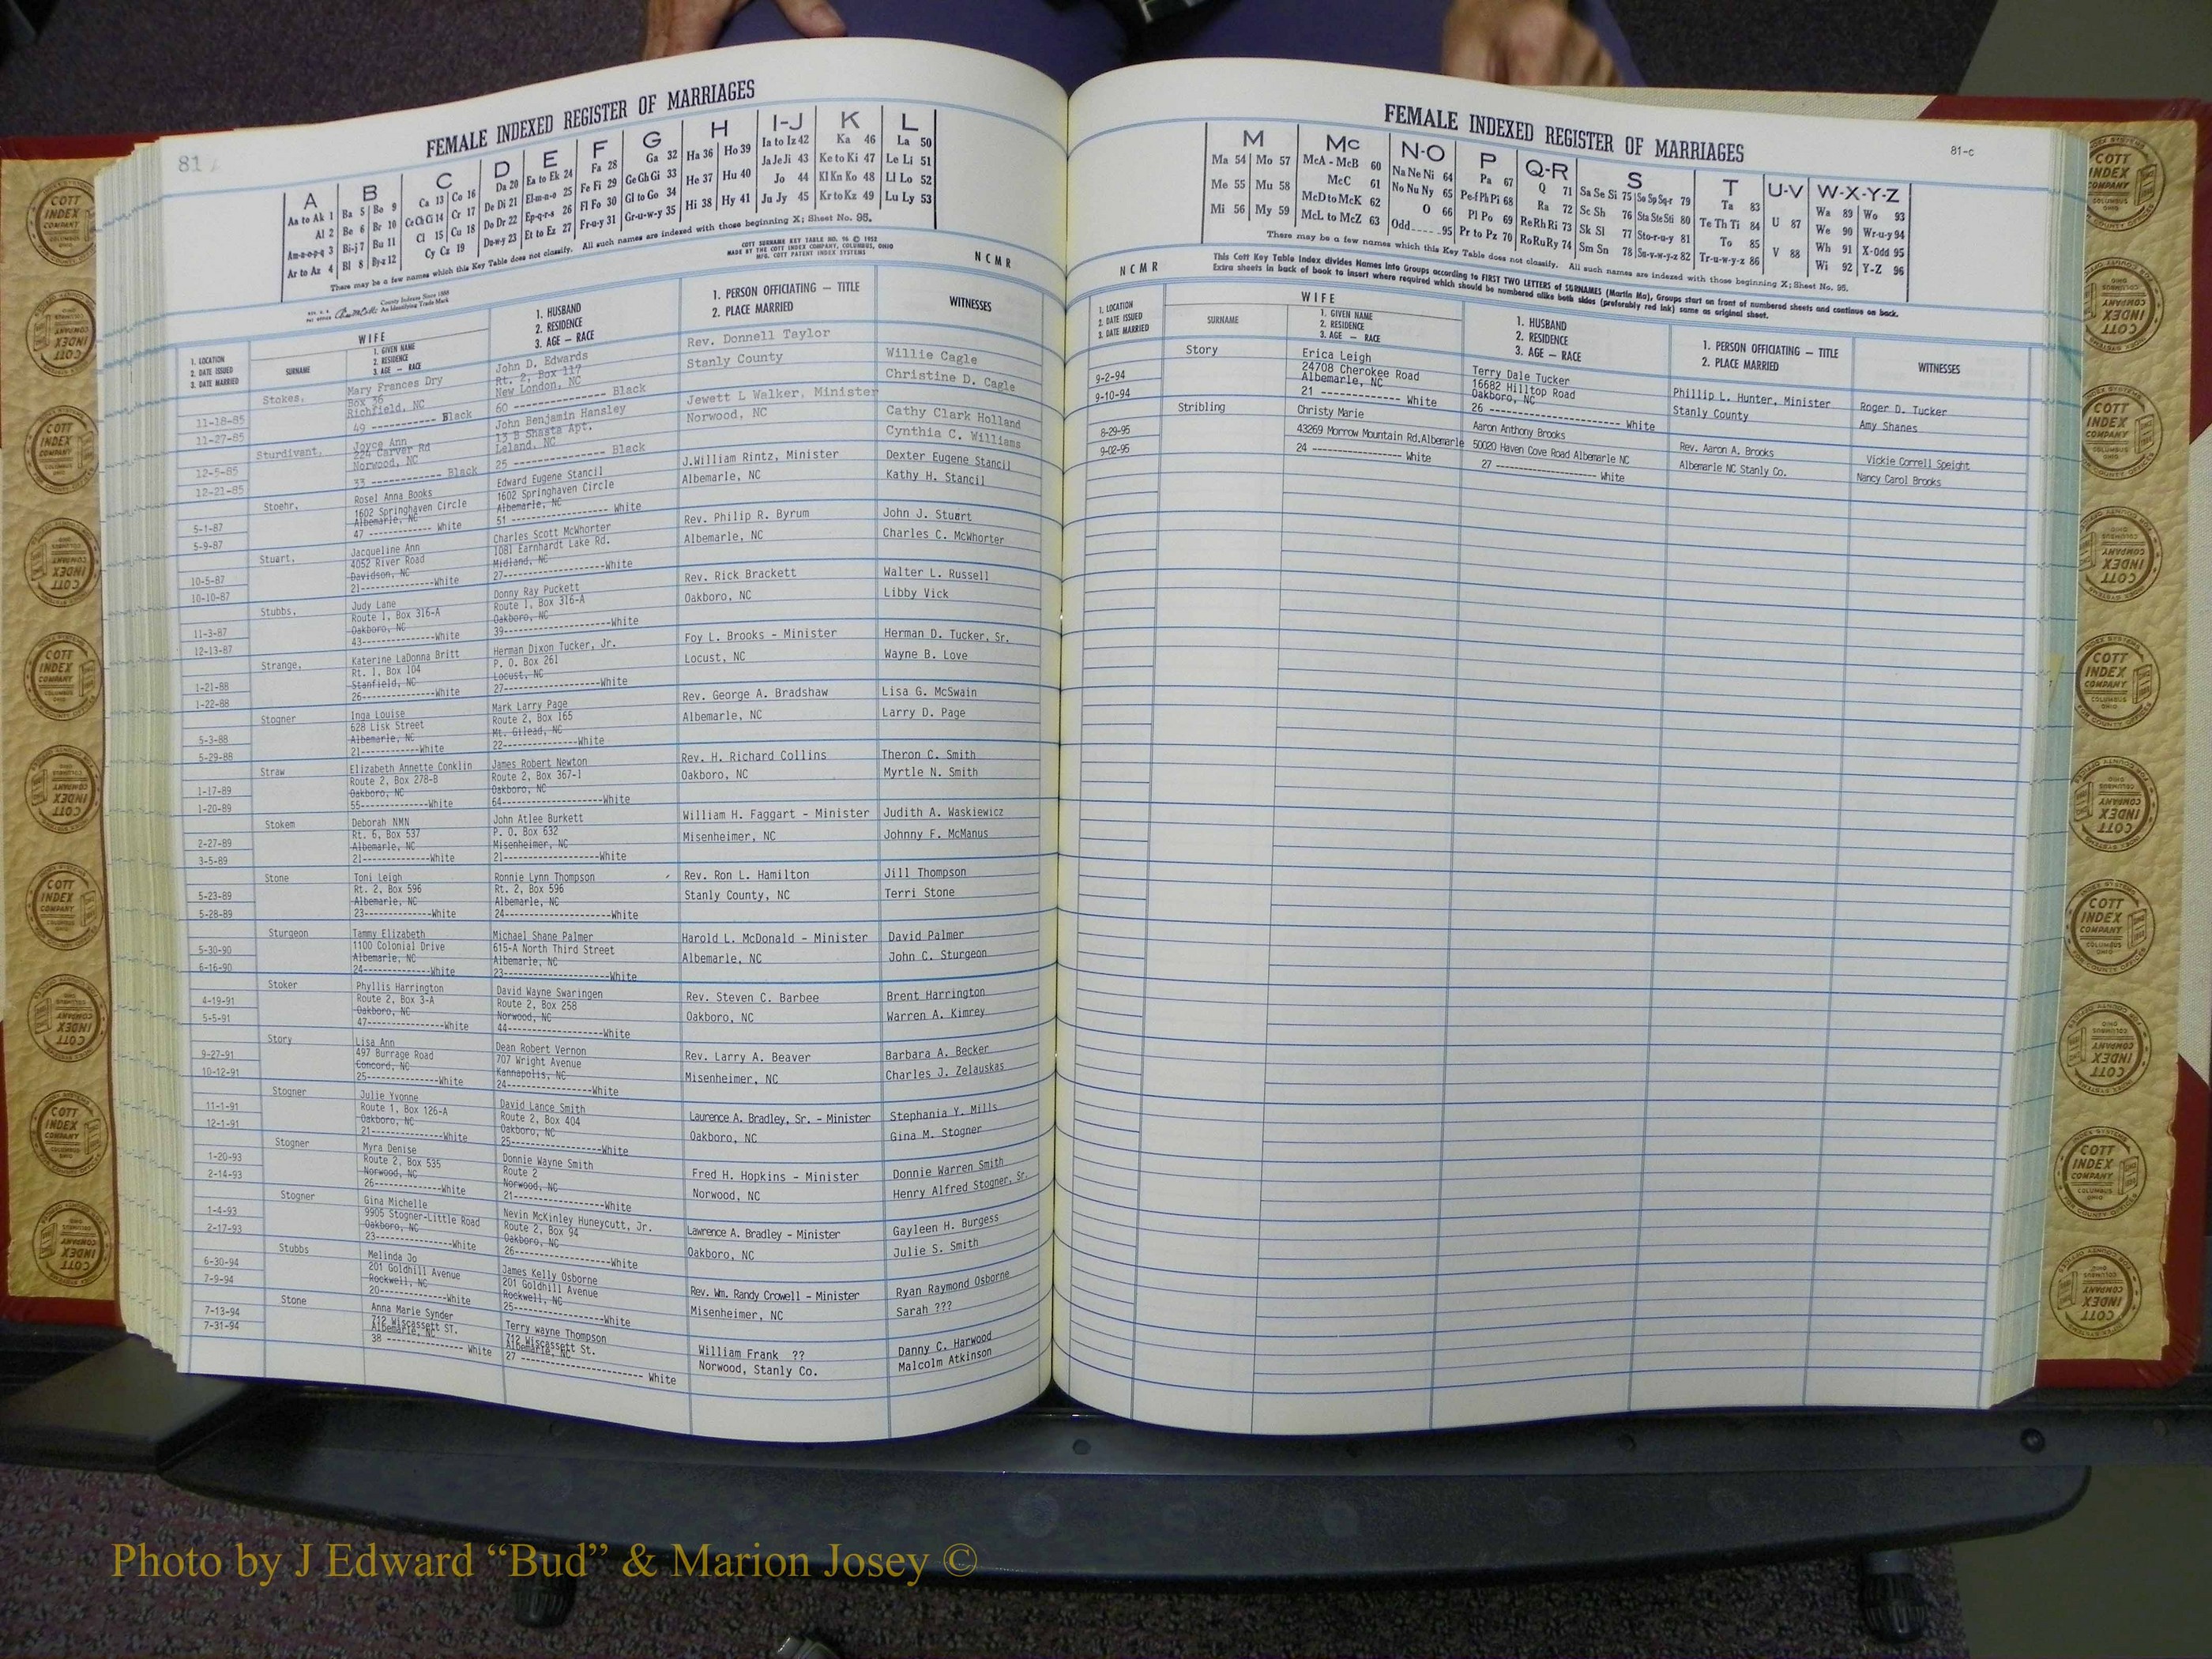 81
FEMALE INDEXED REGISTER OF MARRIAGES
A B C D E F G H I-J K L
Aa to Ak 1 Ba 5 Bo 9 Ca 13 Co 16 Da 20 Ea to Ek 24 Fa 28 Ga 32 Ha 36 Ho 39 Ia to Iz 42 Ka 46 La 50
Al 2 Be 6 Br 10 Ce Ch Ci 14 Cr 17 De Di 21 El-m-n-o 25 Fe Fi 29 Ge Gh Gi 33 He 37 Hu 40 Ja Je Ji 43 Ke to Ki 47 Le Li 51
Am-n-o-p-q 3 Bi-j 7 Bu 11 Cl 15 Cu 18 Do Dr 22 Ep-q-r-s 26 Fl Fo 30 Gl to Go 34 Hi 38 Hy 41 Jo 44 Kl Kn Ko 48 Ll Lo 52
Ar to Az 4 Bl 8 By-z 12 Cy Cz 19 Du-w-y 23 Et to Ez 27 Fr-u-y 31 Gr-u-w-y 35 Ju Jy 45 Kr to Kz 49 Lu Ly 53
There may be a few names which this Key Table does not classify. All such names are indexed with those beginning X; Sheet No. 95.
COTT SURNAME KEY TABLE NO. 96 © 1952
MADE BY THE COTT INDEX COMPANY, COLUMBUS, OHIO
MFG. COTT PATENT INDEX SYSTEMS
NCMR
County Indexes Since 1888
An Identifying Trade Mark
1. LOCATION
2. DATE ISSUED
3. DATE MARRIED
WIFE
SURNAME
1. GIVEN NAME
2. RESIDENCE
3. AGE — RACE
1. HUSBAND
2. RESIDENCE
3. AGE — RACE
1. PERSON OFFICIATING — TITLE
2. PLACE MARRIED
WITNESSES
11-18-85
11-27-85
Stokes,
Mary Frances Dry
Box 36
Richfield, NC
49 ----------- Black
John D. Edwards
Rt. 2, Box 117
New London, NC
60 --------------- Black
Rev. Donnell Taylor
Stanly County
Willie Cagle
Christine D. Cagle
12-5-85
12-21-85
Sturdivant,
Joyce Ann
224 Carver Rd
Norwood, NC
33 ----------- Black
John Benjamin Hansley
13 B Shasta Apt.
Leland, NC
25 --------------- Black
Jewett L Walker, Minister
Norwood, NC
Cathy Clark Holland
Cynthia C. Williams
5-1-87
5-9-87
Stoehr,
Rosel Anna Books
1602 Springhaven Circle
Albemarle, NC
47 ----------- White
Edward Eugene Stancil
1602 Springhaven Circle
Albemarle, NC
51 --------------- White
J.William Rintz, Minister
Albemarle, NC
Dexter Eugene Stancil
Kathy H. Stancil
10-5-87
10-10-87
Stuart,
Jacqueline Ann
4052 River Road
Davidson, NC
21-------------White
Charles Scott McWhorter
1081 Earnhardt Lake Rd.
Midland, NC
27----------------White
Rev. Philip R. Byrum
Albemarle, NC
John J. Stuart
Charles C. McWhorter
11-3-87
12-13-87
Stubbs,
Judy Lane
Route 1, Box 316-A
Oakboro, NC
43-------------White
Donny Ray Puckett
Route 1, Box 316-A
Oakboro, NC
39----------------White
Rev. Rick Brackett
Oakboro, NC
Walter L. Russell
Libby Vick
1-21-88
1-22-88
Strange,
Katerine LaDonna Britt
Rt. 1, Box 104
Stanfield, NC
26-------------White
Herman Dixon Tucker, Jr.
P. O. Box 261
Locust, NC
27----------------White
Foy L. Brooks - Minister
Locust, NC
Herman D. Tucker, Sr.
Wayne B. Love
5-3-88
5-29-88
Stogner
Inga Louise
628 Lisk Street
Albemarle, NC
21-------------White
Mark Larry Page
Route 2, Box 165
Mt. Gilead, NC
22----------------White
Rev. George A. Bradshaw
Albemarle, NC
Lisa G. McSwain
Larry D. Page
1-17-89
1-20-89
Straw
Elizabeth Annette Conklin
Route 2, Box 278-B
Oakboro, NC
55-------------White
James Robert Newton
Route 2, Box 367-1
Oakboro, NC
64----------------White
Rev. H. Richard Collins
Oakboro, NC
Theron C. Smith
Myrtle N. Smith
2-27-89
3-5-89
Stokem
Deborah NMN
Rt. 6, Box 537
Albemarle, NC
21-------------White
John Atlee Burkett
P. O. Box 632
Misenheimer, NC
21----------------White
William H. Faggart - Minister
Misenheimer, NC
Judith A. Waskiewicz
Johnny F. McManus
5-23-89
5-28-89
Stone
Toni Leigh
Rt. 2, Box 596
Albemarle, NC
23-------------White
Ronnie Lynn Thompson
Rt. 2, Box 596
Albemarle, NC
24------------------White
Rev. Ron L. Hamilton
Stanly County, NC
Jill Thompson
Terri Stone
5-30-90
6-16-90
Sturgeon
Tammy Elizabeth
1100 Colonial Drive
Albemarle, NC
24-------------White
Michael Shane Palmer
615-A North Third Street
Albemarle, NC
23------------------White
Harold L. McDonald - Minister
Albemarle, NC
David Palmer
John C. Sturgeon
4-19-91
5-5-91
Stoker
Phyllis Harrington
Route 2, Box 3-A
Oakboro, NC
47--------------White
David Wayne Swaringen
Route 2, Box 258
Norwood, NC
44----------------White
Rev. Steven C. Barbee
Oakboro, NC
Brent Harrington
Warren A. Kimrey
9-27-91
10-12-91
Story
Lisa Ann
497 Burrage Road
Concord, NC
25-------------White
Dean Robert Vernon
707 Wright Avenue
Kannapolis, NC
24--------------White
Rev. Larry A. Beaver
Misenheimer, NC
Barbara A. Becker
Charles J. Zelauskas
11-1-91
12-1-91
Stogner
Julie Yvonne
Route 1, Box 126-A
Oakboro, NC
21-------------White
David Lance Smith
Route 2, Box 404
Oakboro, NC
25---------------White
Laurence A. Bradley, Sr. - Minister
Oakboro, NC
Stephania Y. Mills
Gina M. Stogner
1-20-93
2-14-93
Stogner
Myra Denise
Route 2, Box 535
Norwood, NC
26-------------White
Donnie Wayne Smith
Route 2
Norwood, NC
21---------------White
Fred H. Hopkins - Minister
Norwood, NC
Donnie Warren Smith
Henry Alfred Stogner, Sr.
1-4-93
2-17-93
Stogner
Gina Michelle
9905 Stogner-Little Road
Oakboro, NC
23-------------White
Nevin McKinley Huneycutt, Jr.
Route 2, Box 94
Oakboro, NC
26----------------White
Lawrence A. Bradley - Minister
Oakboro, NC
Gayleen H. Burgess
Julie S. Smith
6-30-94
7-9-94
Stubbs
Melinda Jo
201 Goldhill Avenue
Rockwell, NC
20-------------White
James Kelly Osborne
201 Goldhill Avenue
Rockwell, NC
25---------------White
Rev. Wm. Randy Crowell - Minister
Misenheimer, NC
Ryan Raymond Osborne
Sarah ???
7-13-94
7-31-94
Stone
Anna Marie Synder
712 Wiscassett ST.
Albemarle, NC
38 -------------- White
Terry wayne Thompson
712 Wiscassett St.
Albemarle, NC
27 ---------------------- White
William Frank ??
Norwood, Stanly Co.
Danny C. Harwood
Malcolm Atkinson
FEMALE INDEXED REGISTER OF MARRIAGES
81-c
M Mc N-O P Q-R S T U-V W-X-Y-Z
Ma 54 Mo 57 McA - McB 60 Na Ne Ni 64 Pa 67 Q 71 Sa Se Si 75 So Sp Sq-r 79 Ta 83 U 87 Wa 89 Wo 93
Me 55 Mu 58 McC 61 No Nu Ny 65 Pe-f Ph Pi 68 Ra 72 Sc Sh 76 Sta Ste Sti 80 Te Th Ti 84 V 88 We 90 Wr-u-y 94
Mi 56 My 59 McD to McK 62 O 66 Pl Po 69 Re Rh Ri 73 Sk Sl 77 Sto-r-u-y 81 To 85 Wh 91 X-Odd 95
McL to McZ 63 Odd 95 Pr to Pz 70 Ro Ru Ry 74 Sm Sn 78 Su-v-w-y-z 82 Tr-u-w-y-z 86 Wi 92 Y-Z 96
There may be a few names which this Key Table does not classify. All such names are indexed with those beginning X; Sheet No. 95.
This Cott Key Table Index divides Names into Groups according to FIRST TWO LETTERS of SURNAMES (Martin Ma), Groups start on front of numbered sheets and continue on back.
Extra sheets in back of book to insert where required which should be numbered alike both sides (preferably red ink) same as original sheet.
NCMR
1. LOCATION
2. DATE ISSUED
3. DATE MARRIED
WIFE
SURNAME
1. GIVEN NAME
2. RESIDENCE
3. AGE — RACE
1. HUSBAND
2. RESIDENCE
3. AGE — RACE
1. PERSON OFFICIATING — TITLE
2. PLACE MARRIED
WITNESSES
9-2-94
9-10-94
Story
Erica Leigh
24708 Cherokee Road
Albemarle, NC
21 ---------------- White
Terry Dale Tucker
16682 Hilltop Road
Oakboro, NC
26 -------------------- White
Phillip L. Hunter, Minister
Stanly County
Roger D. Tucker
Amy Shanes
8-29-95
9-02-95
Stribling
Christy Marie
43269 Morrow Mountain Rd.Albemarle
24 ------------------ White
Aaron Anthony Brooks
50020 Haven Cove Road Albemarle NC
27 -------------------- White
Rev. Aaron A. Brooks
Albemarle NC Stanly Co.
Vickie Correll Speight
Nancy Carol Brooks
COTT
INDEX
COMPANY
COLUMBUS
OHIO
Photo by J Edward “Bud” & Marion Josey ©